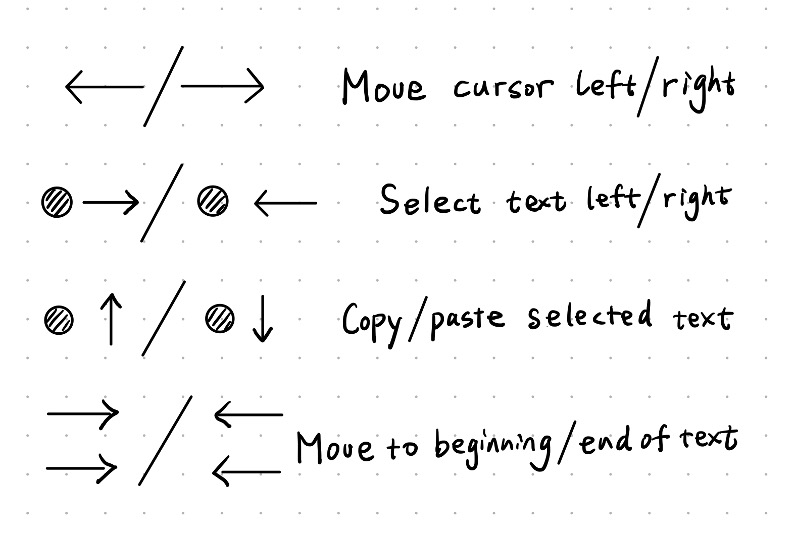 Move cursor left/right
Select text left/right
Copy/paste selected text
Move to beginning/end of text